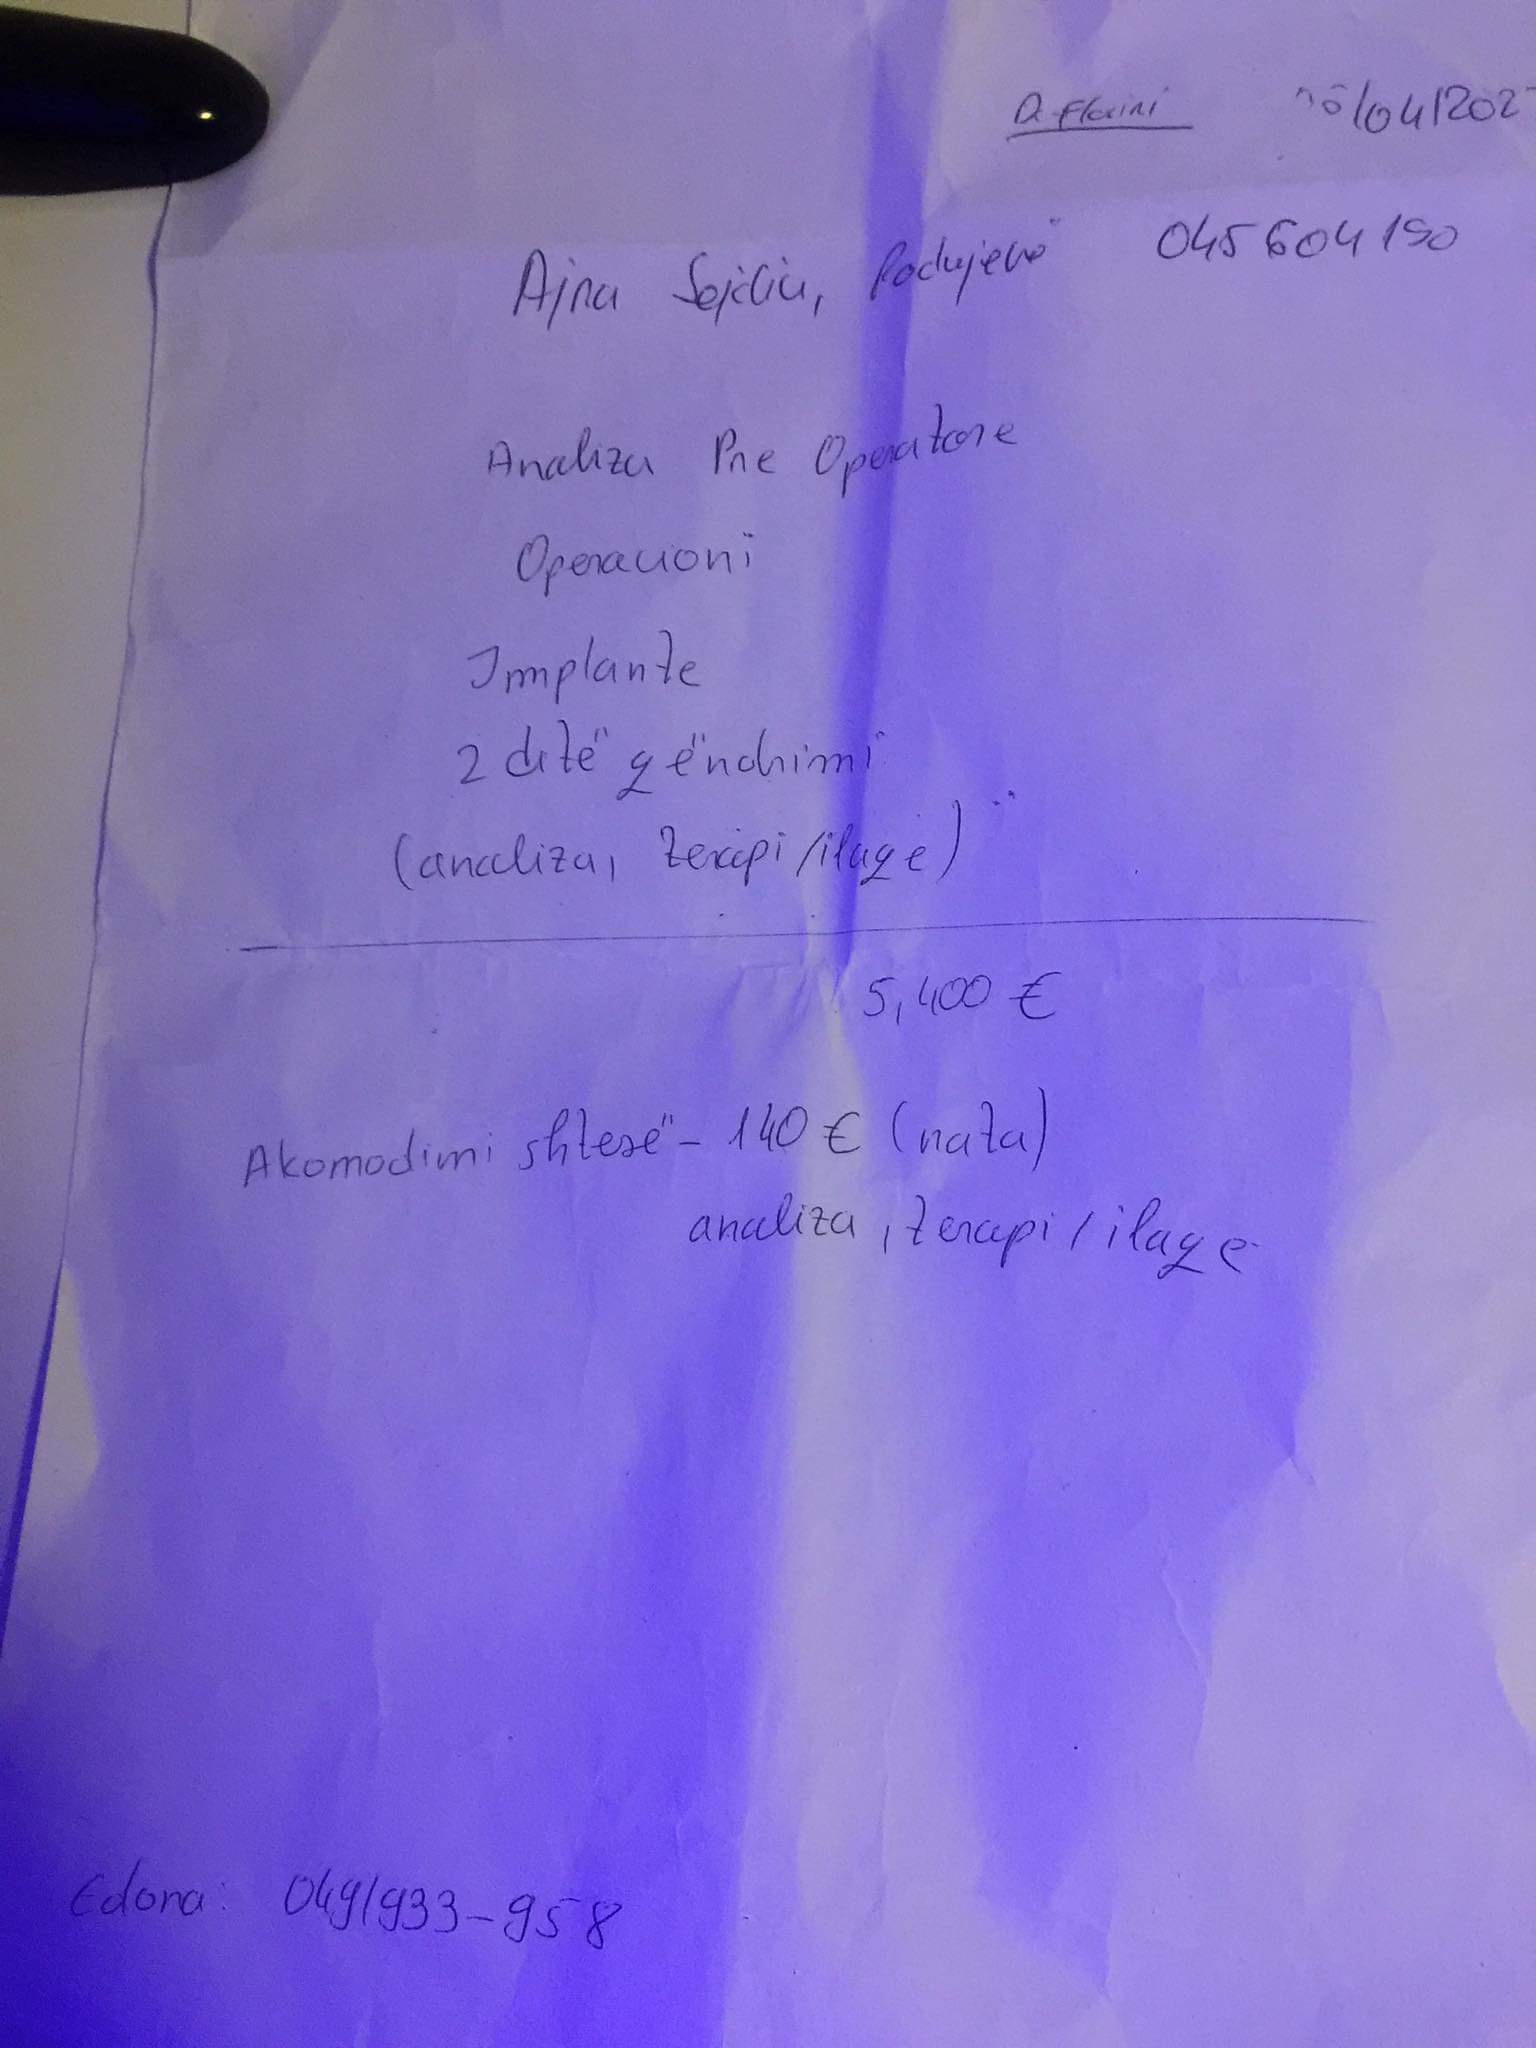 Dr. Florini
/04/202
Ajna Sejdiu, Podujevë 045 604 190
Analiza Pre Operatore
Operacioni
Implante
2 ditë qëndrimi
(analiza, terapi/ilaqe)
5,400 €
Akomodimi shtesë - 140 € (nata)
analiza, terapi/ilaqe
Edona: 049/933-958